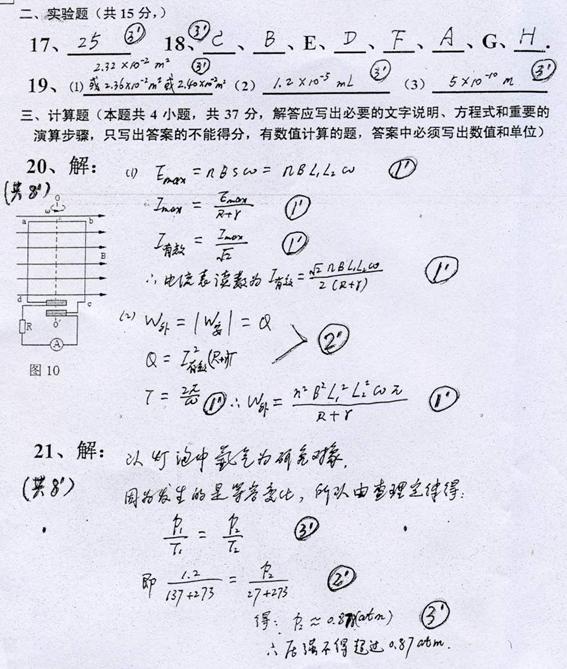 二、实验题（共15分，）
17、 25 ③' 18、③' C 、 B 、E、 D 、 F 、 A 、G、 H .
2.32×10⁻² m² ③'
19、(1) 或2.36×10⁻²m²或2.40×10⁻²m² (2) 1.2×10⁻⁵ mL ③' (3) 5×10⁻¹⁰ m ③'
三、计算题（本题共4小题，共37分，解答应写出必要的文字说明、方程式和重要的
演算步骤，只写出答案的不能得分，有数值计算的题，答案中必须写出数值和单位）
20、解： (1) Emax = nBsω = nBL₁L₂ω ①'
(共8')
Imax = Emax/(R+r) ①'
I有效 = Imax/√2 ①'
∴电流表读数为 I有效 = √2nBL₁L₂ω/2(R+r) ①'
(2) W外 = |W安| = Q
Q = I²有效(R+r)T ②'
T = 2π/ω ①' ∴W外 = n²B²L₁²L₂²ωπ/(R+r) ①'
O ω a b B d c O' R A
图10
21、解： 以灯泡中氩气为研究对象，
(共8')
因为发生的是等容变化，所以由查理定律得：
P₁/T₁ = P₂/T₂ ③'
即 1.2/(137+273) = P₂/(27+273) ②'
得：P₂≈0.87(atm) ③'
∴压强不得超过0.87atm.